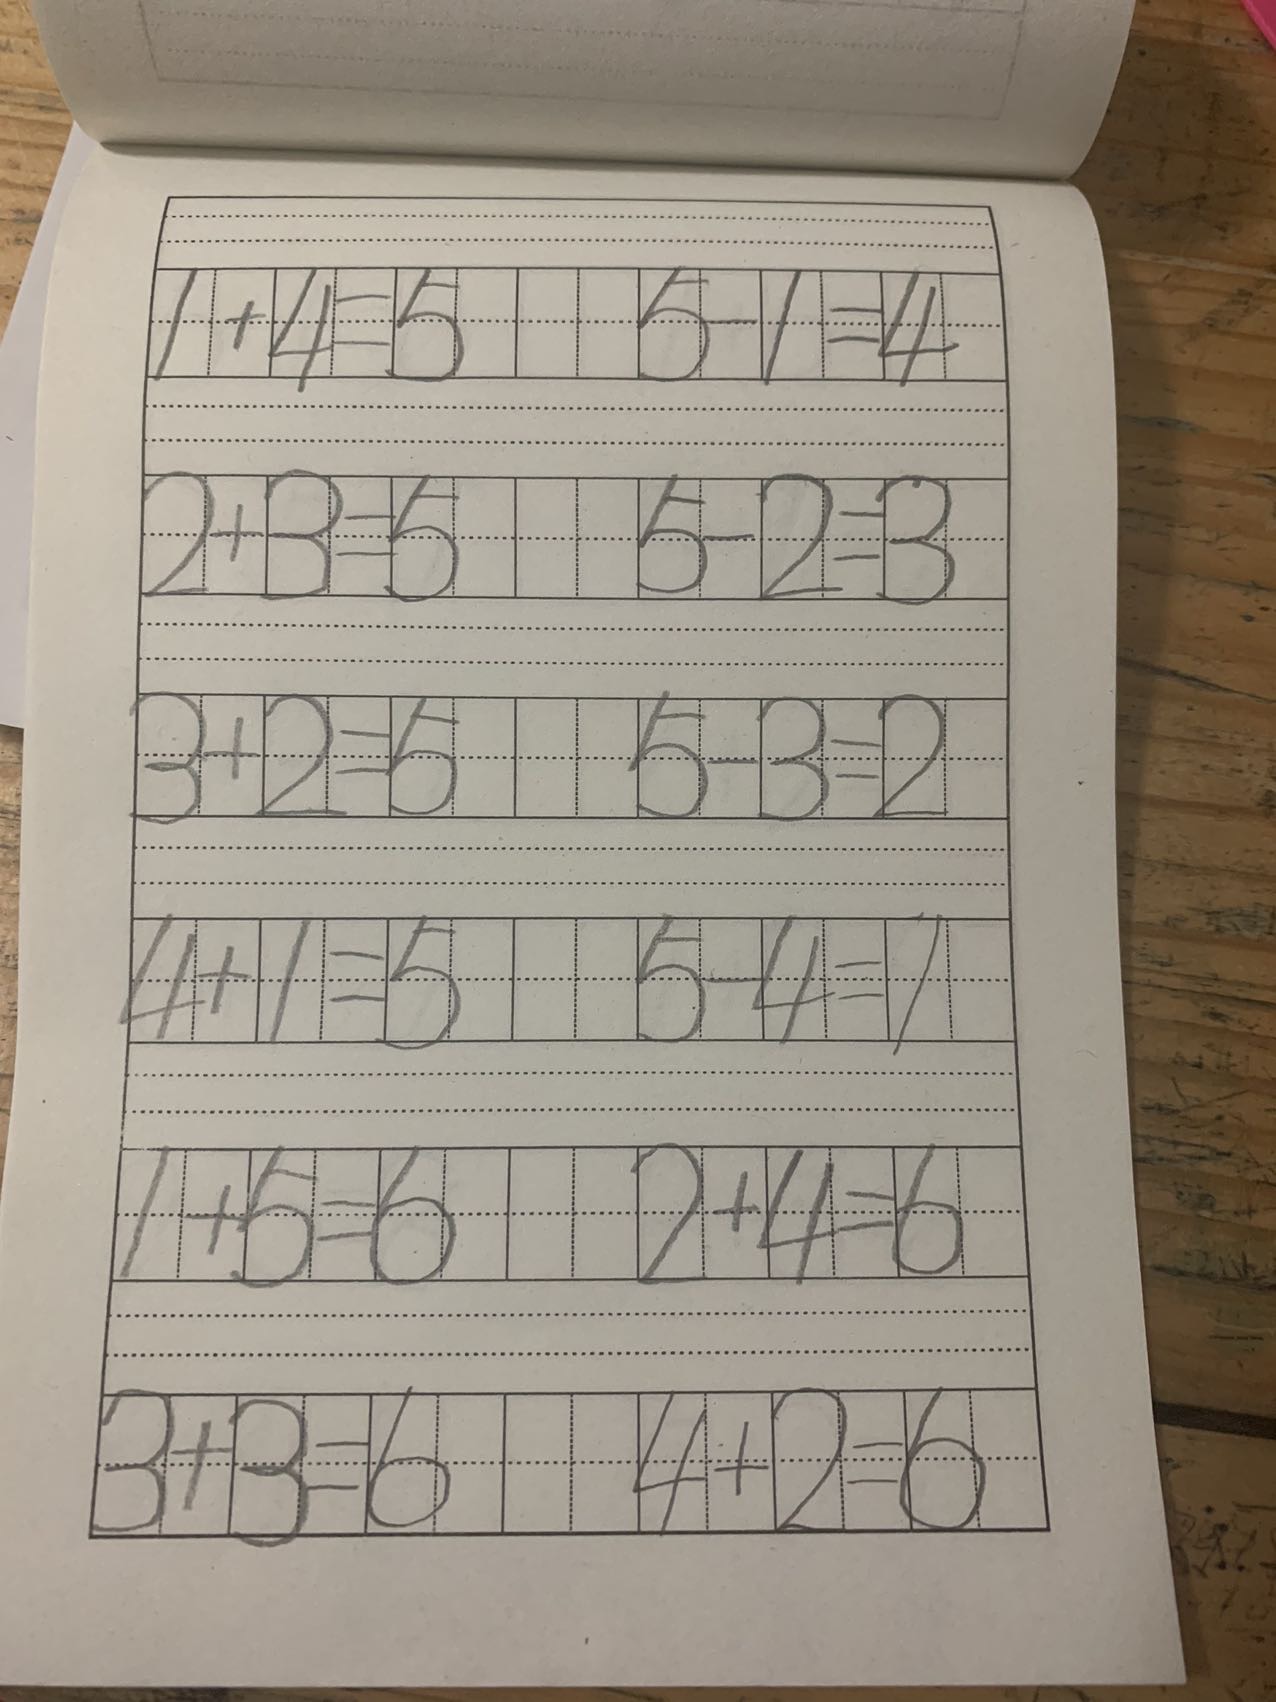 1+4=5 5-1=4
2+3=5 5-2=3
3+2=5 5-3=2
4+1=5 5-4=1
1+5=6 2+4=6
3+3=6 4+2=6